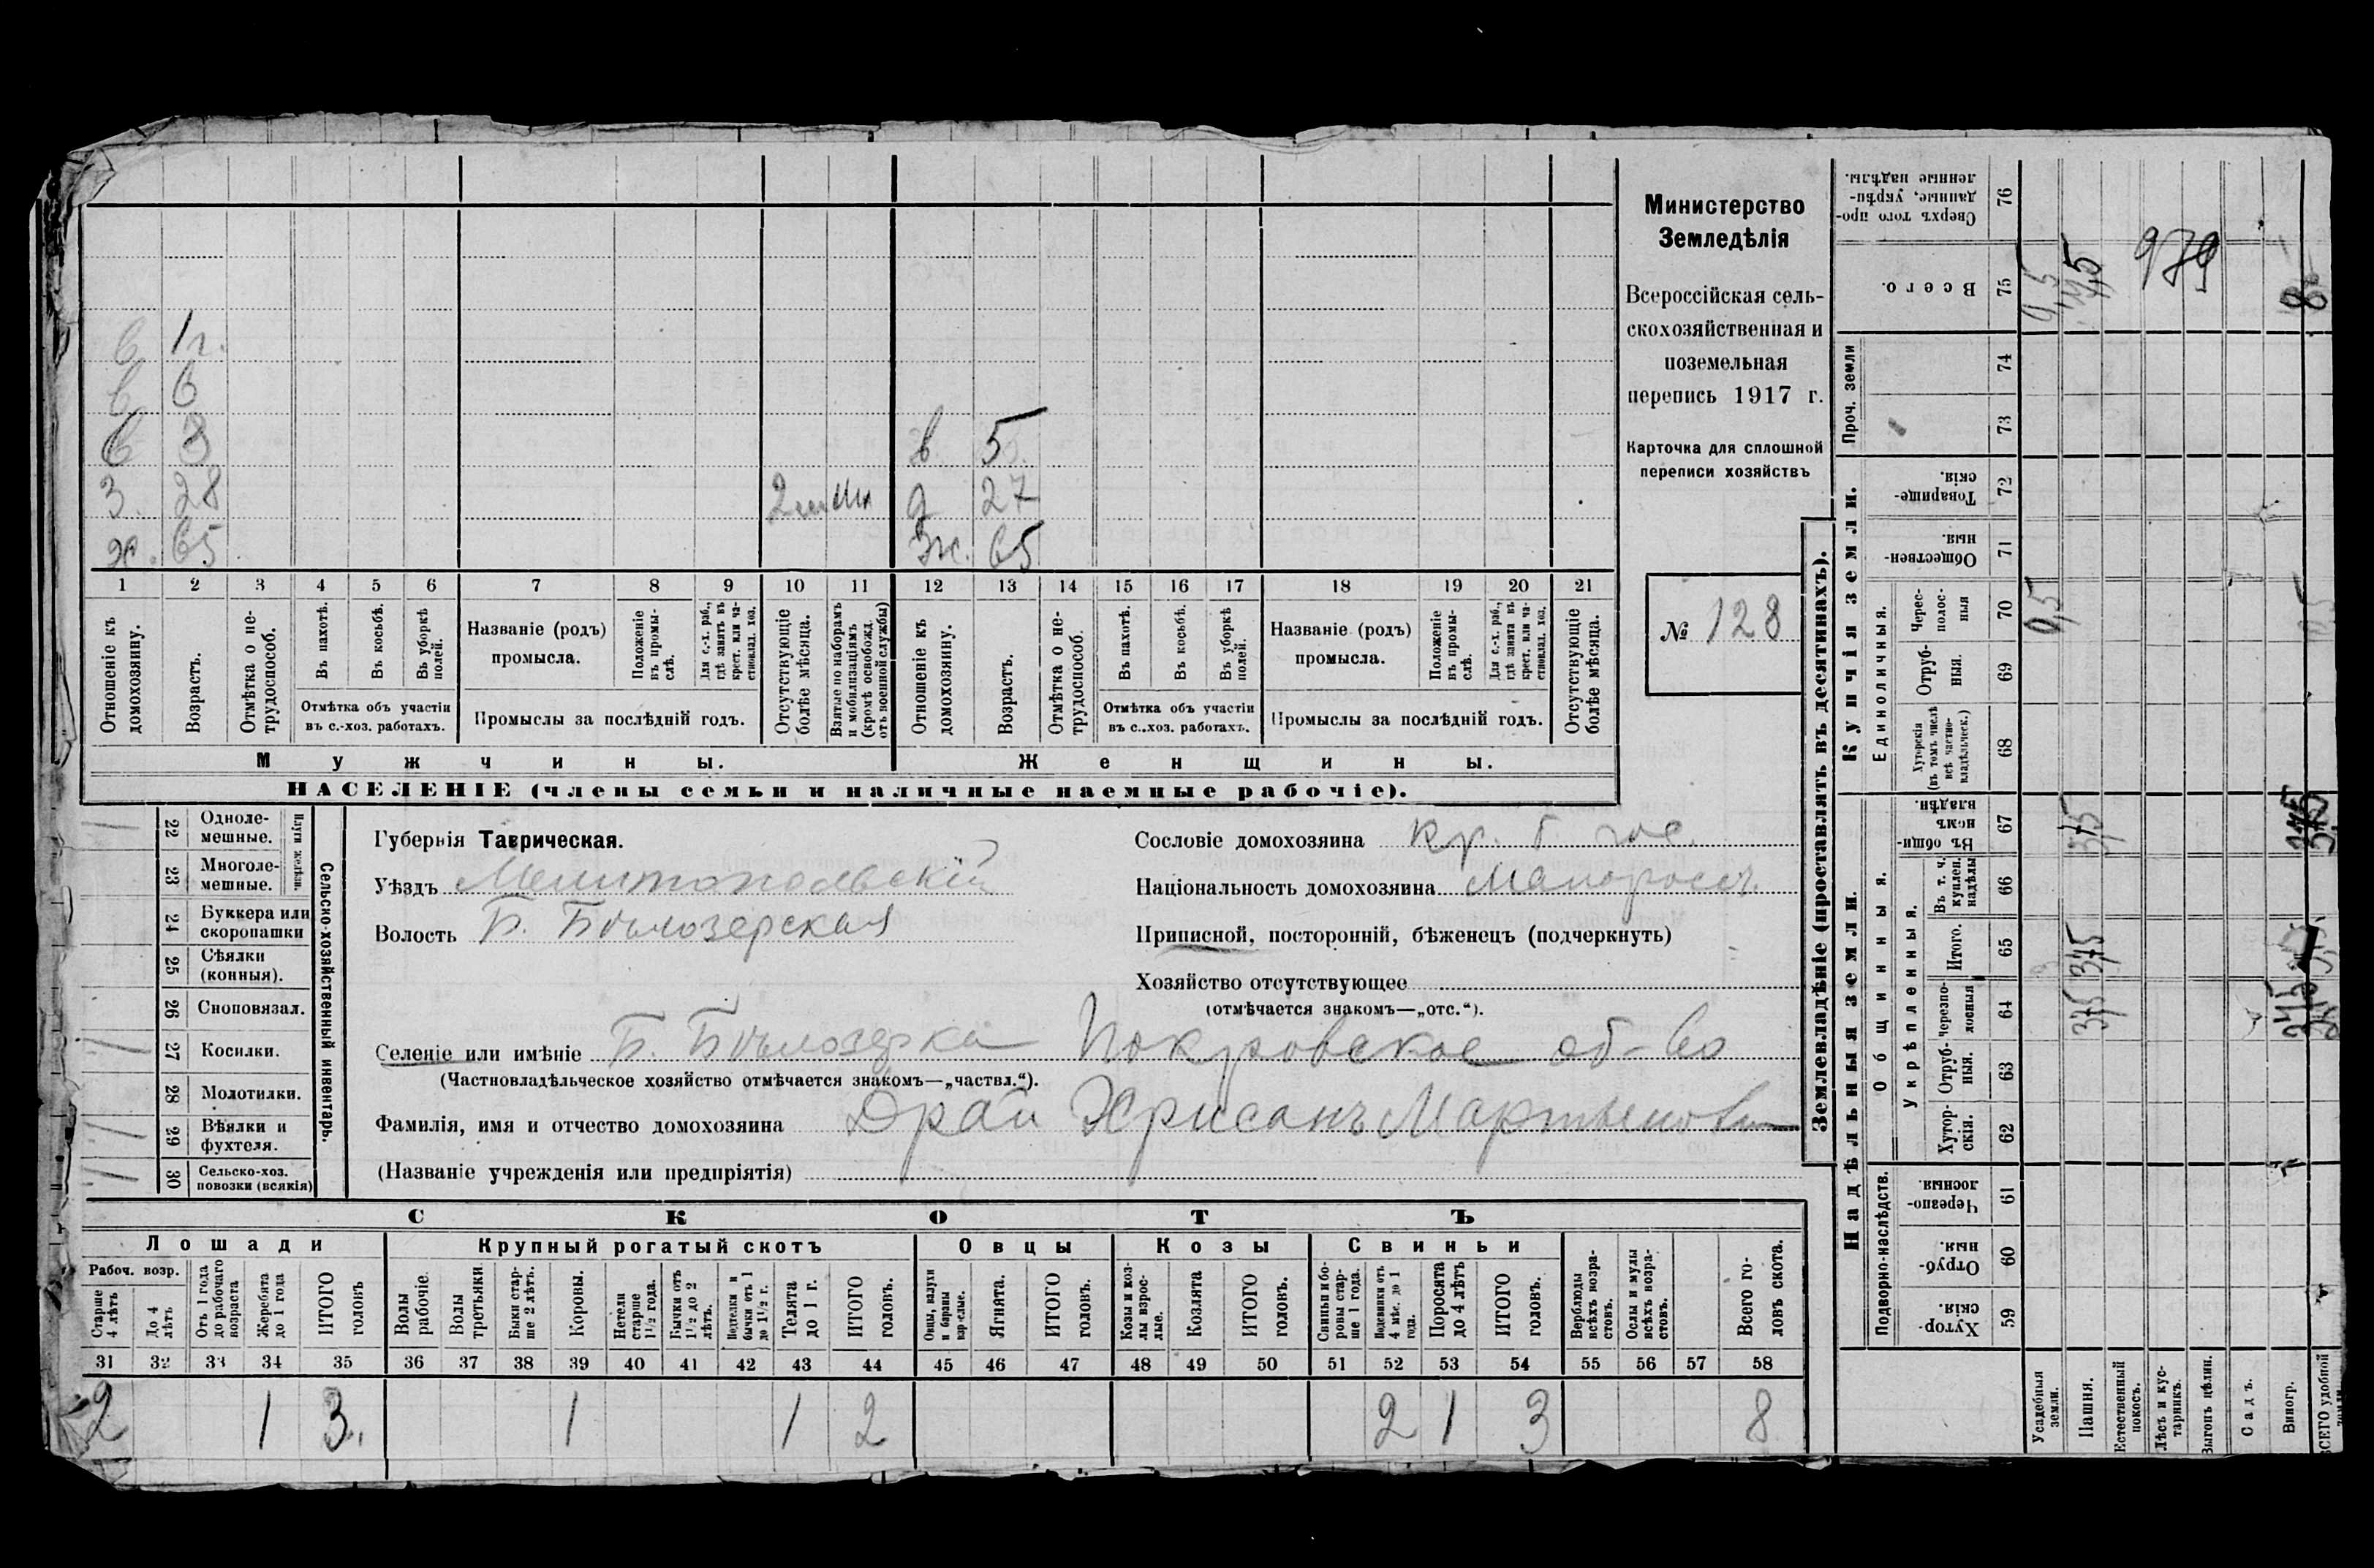 в 1 г.
в 6
в 8 в 5
З. 28 2 д 27
х. 65 Ж. 65
1 2 3 4 5 6 7 8 9 10 11 12 13 14 15 16 17 18 19 20 21
Отношеніе къ домохозяину.
Возрастъ.
Отмѣтка о не-трудоспособ.
Въ пахотѣ.
Въ косьбѣ.
Въ уборкѣ полей.
Отмѣтка объ участіи
въ с.-хоз. работахъ.
Названіе (родъ)
промысла.
Положеніе въ промы-слѣ.
Для с.-х. раб., гдѣ занятъ въ крест. или ча-стновлад. хоз.
Промыслы за послѣдній годъ.
Отсутствующіе болѣе мѣсяца.
Взятые по наборамъ и мобилизаціямъ (кромѣ освобожд. отъ военной службы)
Отношеніе къ домохозяину.
Возрастъ.
Отмѣтка о не-трудоспособ.
Въ пахотѣ.
Въ косьбѣ.
Въ уборкѣ полей.
Отмѣтка объ участіи
въ с.-хоз. работахъ.
Названіе (родъ)
промысла.
Положеніе въ промы-слѣ.
Для с.-х. раб., гдѣ занята въ крест. или ча-стновлад. хоз.
Промыслы за послѣдній годъ.
Отсутствующіе болѣе мѣсяца.
Мужчины. Женщины.
НАСЕЛЕНІЕ (члены семьи и наличные наемные рабочіе).
Министерство
Земледѣлія
Всероссійская сель-
скохозяйственная и
поземельная
перепись 1917 г.
Карточка для сплошной
переписи хозяйствъ
№ 128
22 Одноле-мешные.
23 Многоле-мешные.
24 Буккера или скоропашки
25 Сѣялки (конныя).
26 Сноповязал.
27 Косилки.
28 Молотилки.
29 Вѣялки и фухтеля.
30 Сельско-хоз. повозки (всякія)
Сельско-хозяйственный инвентарь.
Губернія Таврическая.
Уѣздъ Мелитопольскій
Волость Б. Бѣлозерская
Сословіе домохозяина кр. б. гос.
Національность домохозяина Малороссъ
Приписной, посторонній, бѣженецъ (подчеркнуть)
Хозяйство отсутствующее
(отмѣчается знакомъ—„отс.“).
Селеніе или имѣніе Б. Бѣлозерка Покровское об-во
(Частновладѣльческое хозяйство отмѣчается знакомъ—„частвл.“).
Фамилія, имя и отчество домохозяина Драй Хрисанъ Мартынови
(Названіе учрежденія или предпріятія)
СКОТЪ
Лошади Крупный рогатый скотъ Овцы Козы Свиньи
Рабоч. возр.
Старше 4 лѣтъ
До 4 лѣтъ
Отъ 1 года до рабочаго возраста
Жеребята до 1 года
ИТОГО головъ
Волы рабочіе.
Волы третьяки.
Быки стар-ше 2 лѣтъ.
Коровы.
Нетели старше 1 1/2 года.
Бычки отъ 1 1/2 до 2 лѣтъ.
Подтелки и бычки отъ 1 до 1 1/2 г.
Телята до 1 г.
ИТОГО головъ.
Овцы, валухи и бараны взрослые.
Ягнята.
ИТОГО головъ.
Козы и коз-лы взрос-лые.
Козлята
ИТОГО головъ.
Свиньи и бо-ровы стар-ше 1 года.
Подсвинки отъ 4 мѣс. до 1 года.
Поросята до 4 лѣтъ
ИТОГО головъ.
Верблюды всѣхъ возра-стовъ.
Ослы и мулы всѣхъ возра-стовъ.
Всего го-ловъ скота.
31 32 33 34 35 36 37 38 39 40 41 42 43 44 45 46 47 48 49 50 51 52 53 54 55 56 57 58
2 1 3 1 1 2 2 1 3 8
Землевладѣніе (проставлять въ десятинахъ).
Надѣльныя земли. Купчія земли. Проч. земли
Подворно-наслѣдств. Общинныя. Укрѣпленныя. Единоличныя.
59 Хутор-скія.
60 Отруб-ныя.
61 Черезпо-лосныя.
62 Хутор-скія.
63 Отруб-ныя.
64 черезпо-лосныя 375
65 Итого. 375
66 Въ т. ч. куплен. надѣлы
67 Въ общи-номъ владѣн. 375
68 Хуторскія (въ томъ числѣ всѣ частно-владѣльческ.)
69 Отруб-ныя.
70 Черес-полос-ныя 0,5
71 Обществен-ныя.
72 Товарище-скія.
73
74
75 Всего. 8
76 Сверхъ того про-данные, укрѣп-ленные надѣлы.
979
Усадебныя земли.
Пашня.
Естественный покосъ.
Лѣсъ и кус-тарникъ.
Выгонъ цѣлин.
Садъ.
Виногр.
ВСЕГО удобной